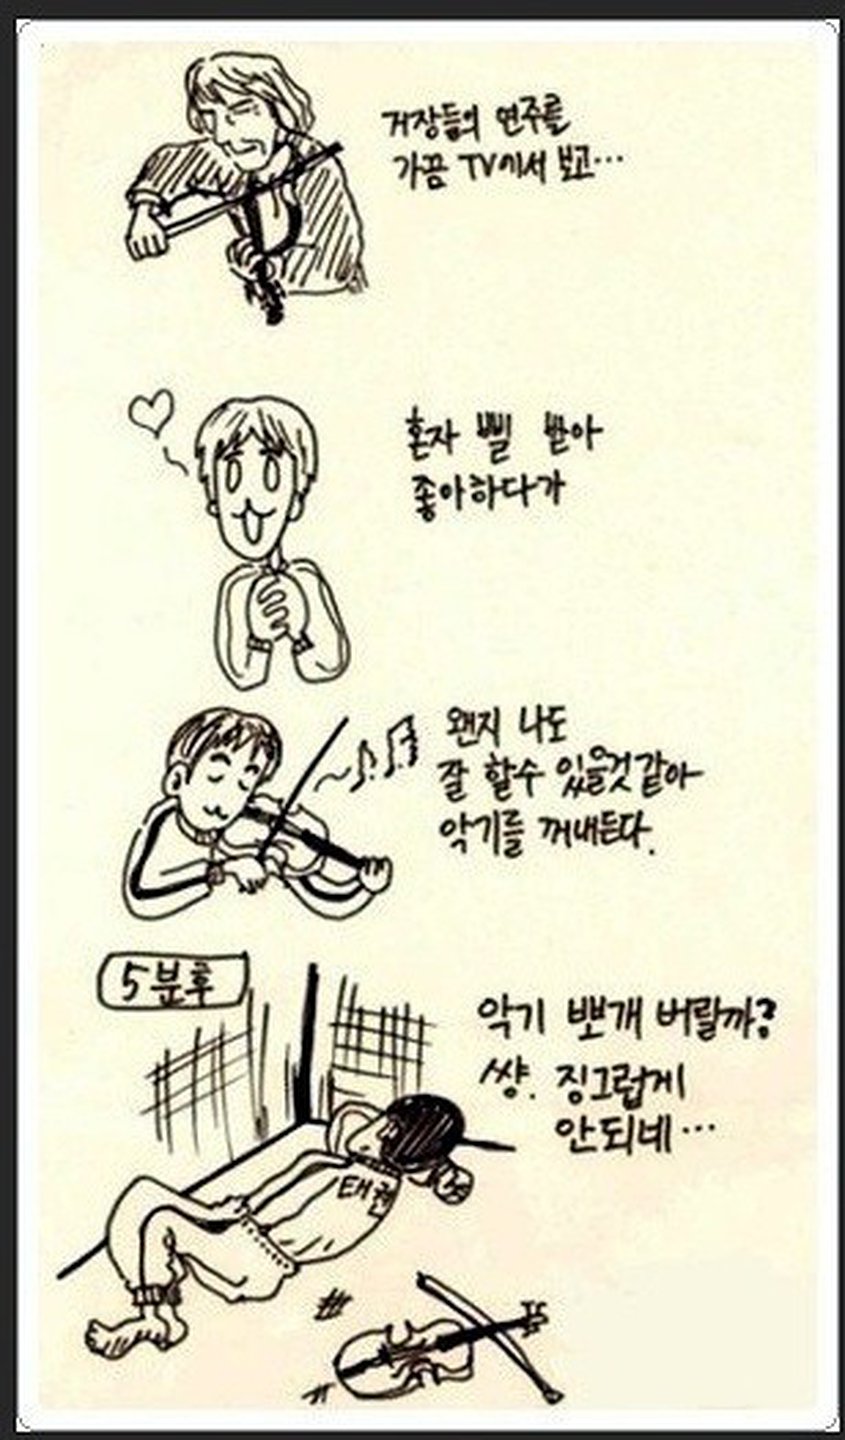 거장들의 연주를
가끔 TV에서 보고…
혼자 삘 받아
좋아하다가
왠지 나도
잘 할수 있을것 같아
악기를 꺼내든다.
5분후
악기 뽀개 버릴까?
썅. 징그럽게
안되네…
태권